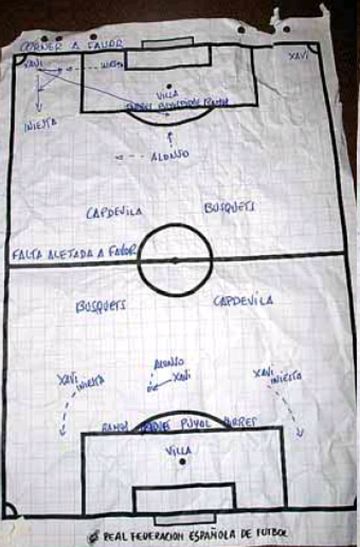 CORNER A FAVOR
XAVI INIESTA XAVI
VILLA
TORRES PUYOL PIQUE RAMOS
INIESTA
ALONSO
CAPDEVILA BUSQUETS
FALTA ALEJADA A FAVOR
BUSQUETS CAPDEVILA
ALONSO
XAVI INIESTA XAVI XAVI INIESTA
RAMOS PIQUE PUYOL TORRES
VILLA
REAL FEDERACION ESPAÑOLA DE FUTBOL